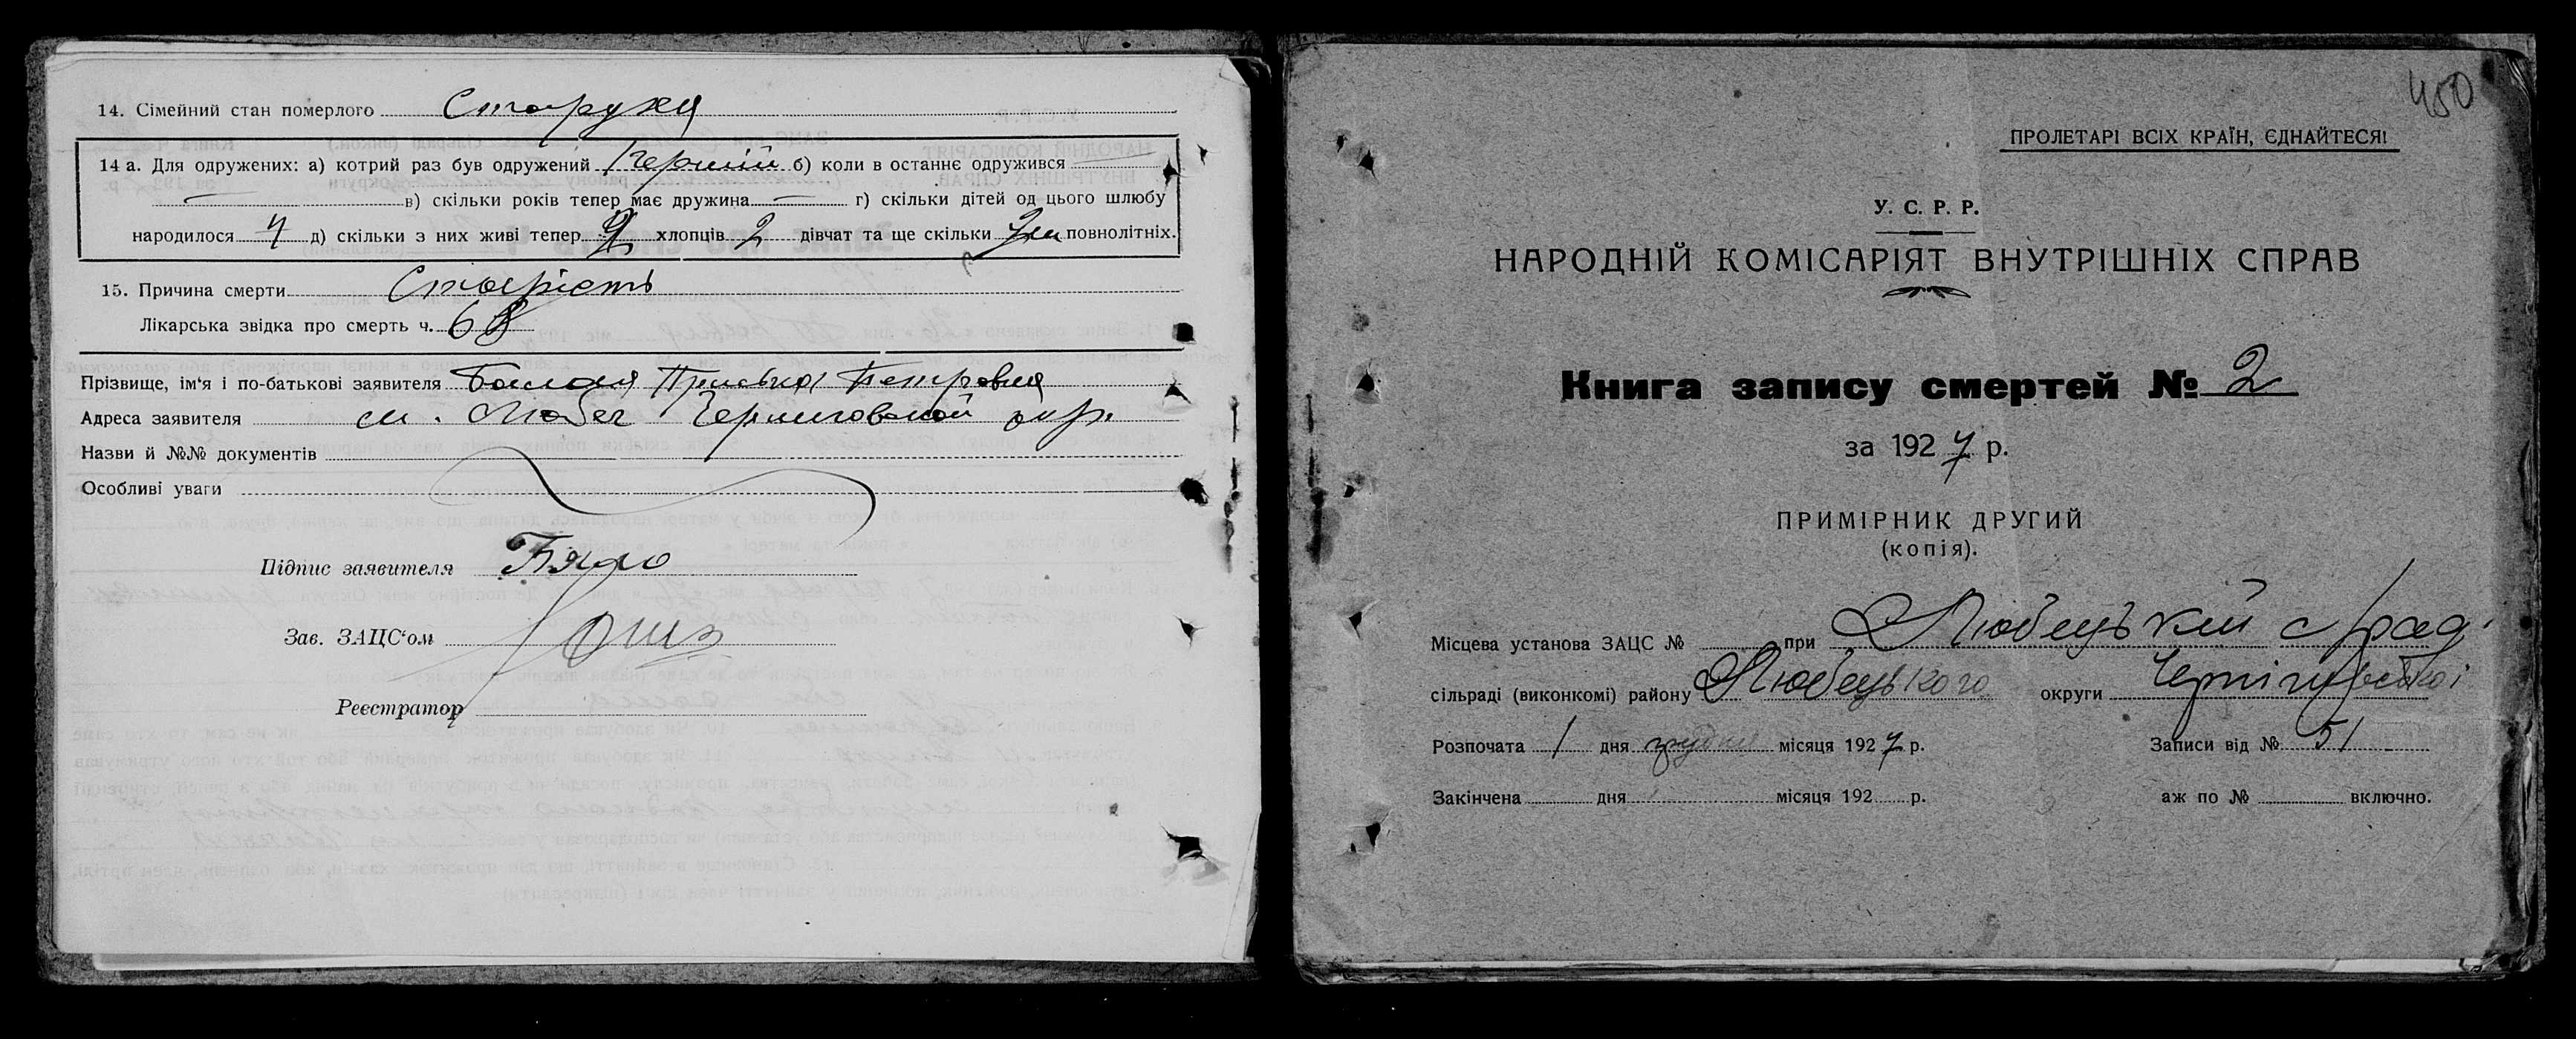 14. Сімейний стан померлого Старуха
14 а. Для одружених: а) котрий раз був одружений б) коли в останнє одружився
в) скільки років тепер має дружина г) скільки дітей од цього шлюбу
народилося 4 д) скільки з них живі тепер хлопців 2 дівчат та ще скільки повнолітніх.
15. Причина смерти Старість
Лікарська звідка про смерть ч.
Прізвище, ім‘я і по-батькові заявителя Петровна
Адреса заявителя м. Любеч Черниговской окр.
Назви й №№ документів
Особливі уваги
Підпис заявителя
Зав. ЗАЦС‘ом
Реєстратор
450
ПРОЛЕТАРІ ВСІХ КРАЇН, ЄДНАЙТЕСЯ!
У. С. Р. Р.
НАРОДНІЙ КОМІСАРІЯТ ВНУТРІШНІХ СПРАВ
Книга запису смертей № 2
за 1927 р.
ПРИМІРНИК ДРУГИЙ
(копія).
Місцева установа ЗАЦС № при Любецькій
сільраді (виконкомі) району Любецького округи Чернігівської
Розпочата 1 дня грудня місяця 1927 р. Записи від № 51
Закінчена дня місяця 192 р. аж по № включно.